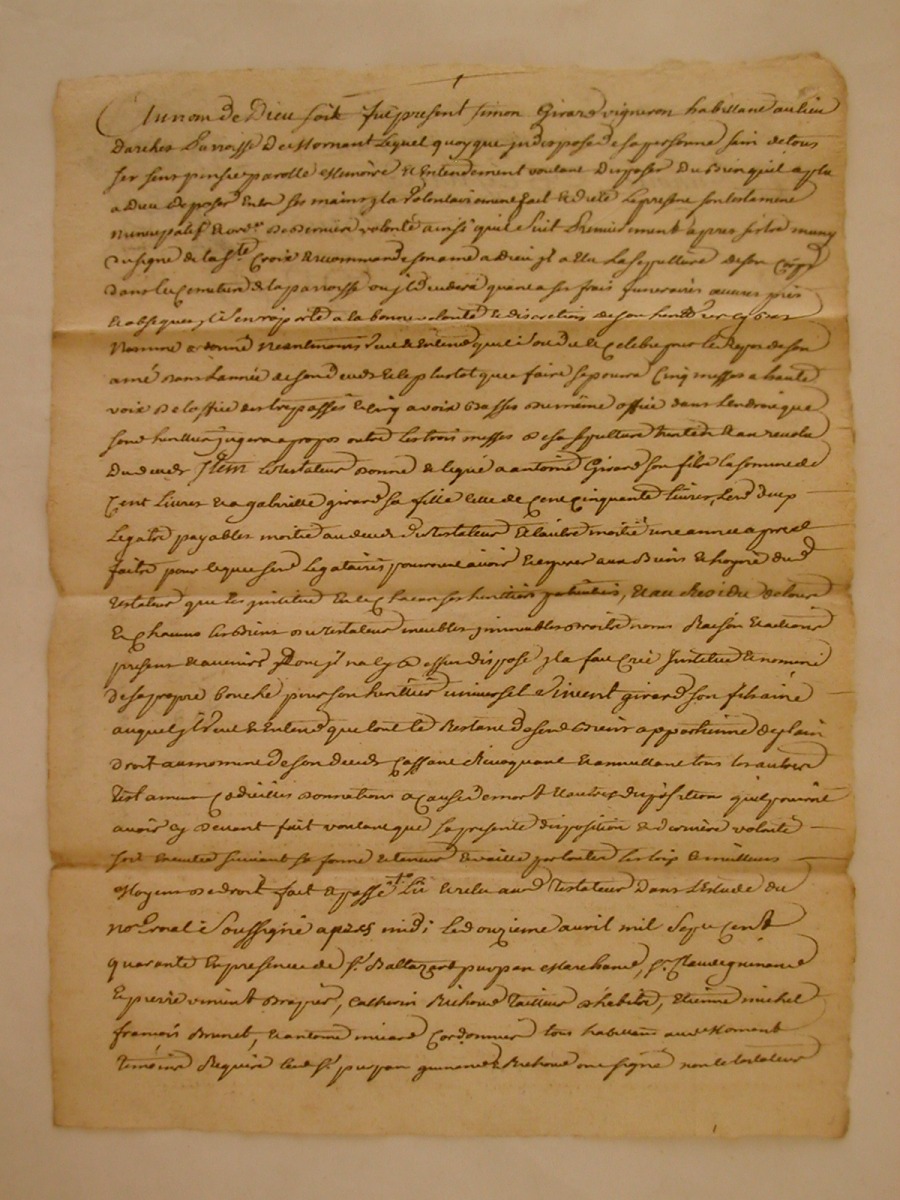 Au nom de Dieu soit fut present simon Girard vigneron habittant au lieu
Darches Parroisse De Mornant Lequel quoyque indisposé de sa personne sain de tous
ses sens pensée parolle Memoire Et Entendement voulant Disposer Du Bien quil a plu
a Dieu De poser Entre ses mains il a volontairement fait et dicté le present son testament
nuncupatif Et ordre De derniere volonté ainsi quil suit Premierement apres s'estre muny
du signe de la Ste Croix Et recommandé son ame a Dieu jl a Elu La sepulture De son Corps
dans le Cemetiere de la parroisse ou jl decedera quant a ses frais funeraires
Et obseques jl s'en raporte a la bonne volonté Et discretion de son heritier cy bas
Nommé neantmoins veut Et Entend quil soit Celebré pour le Repos de son
ame dans L'année de son deceds Et le plustot que faire se pourra Cinq messes a haute
voix De loffice des trepassés Et Cinq a voix Basses du même office dans Lendroit que
sond heritier jugera a propos outre les trois messes de sa sepulture
Du deceds Item Le testateur Donne Et legue a antoine Girard son fils la somme de
Cent Livres Et a gabrielle girard sa fille celle de Cent Cinquante Livres Lesd deux
Legats payables moitié au deceds du testateur Et l'autre moitié une annee apres
pour lesquels Legataires pourront avoir Et esperer aux Biens Et hoyrie dud
testateur que les institue En ce faisant ses heritiers particuliers, Et au Residu de tous
Et Chacuns les Biens du testateur meubles immeubles droits noms Raison Et actions
present Et avenirs Dont jl na Cy Dessus disposé jl a fait Creé Institué Et nommé
de sa propre bouche pour son heritier universel Vincent girard son fils ainé
auquel jl veut Et Entend que tout le Restant de sesd Biens appartienne de plain
droit au moment de son deceds Cassant Revoquant Et annullant tous les autres
testament Codicilles donnations a Cause de mort Et autres dispositions quil pourroit
avoir Cy devant fait voulant que sa presente disposition Et derniere volonté
soit Executée suivant sa forme Et teneur Et vaille par toutes les lois Et meilleurs
Moyens de droit fait Et passé Lu Et relu aud testateur Dans L'Estude du
nore Royal Soussigné apres midi Le douzieme avril mil Sept Cent
quarante En presence de sr. Baltazard puspan Marchand, sr. Claude guinand
Et pierre vincent Drapier, Catherin Richoud tailleur d'habits, Etienne michel
françois Brunet, Et antoine Cordonnier tous habittans aud Mornant
temoins Requis Lesd srs puspan guinand Et Richoud ont signé non le testateur